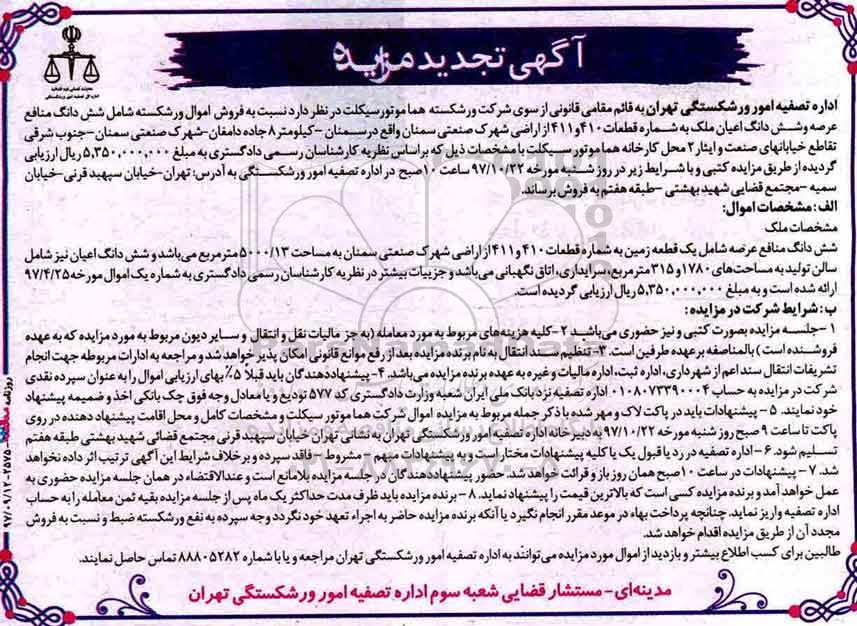 آگهی تجدید مزایده
اداره تصفیه امور ورشکستگی تهران به قائم مقامی قانونی از سوی شرکت ورشکسته هما موتورسیکلت در نظر دارد نسبت به فروش اموال ورشکسته شامل شش دانگ منافع
عرصه وشش دانگ اعیان ملک به شماره قطعات ۴۱۰ و ۴۱۱ از اراضی شهرک صنعتی سمنان واقع در سمنان -کیلومتر ۸ جاده دامغان -شهرک صنعتی سمنان -جنوب شرقی
تقاطع خیابانهای صنعت و ایثار ۲ محل کارخانه هما موتور سیکلت با مشخصات ذیل که براساس نظریه کارشناسان رسمی دادگستری به مبلغ ۵,۳۵۰,۰۰۰,۰۰۰ ریال ارزیابی
گردیده از طریق مزایده کتبی و با شرایط زیر در روز شنبه مورخه ۹۷/۱۰/۲۲ ساعت ۱۰ صبح در اداره تصفیه امور ورشکستگی به آدرس: تهران-خیابان سپهبد قرنی-خیابان
سمیه -مجتمع قضایی شهید بهشتی -طبقه هفتم به فروش برساند.
الف: مشخصات اموال:
مشخصات ملک
شش دانگ منافع عرصه شامل یک قطعه زمین به شماره قطعات ۴۱۰ و ۴۱۱ از اراضی شهرک صنعتی سمنان به مساحت ۵۰۰۰/۱۳ مترمربع می‌باشد و شش دانگ اعیان نیز شامل
سالن تولید به مساحت‌های ۱۷۸۰ و ۳۱۵ مترمربع، سرایداری، اتاق نگهبانی می‌باشد و جزییات بیشتر در نظریه کارشناسان رسمی دادگستری به شماره یک اموال مورخه ۹۷/۴/۲۵
ارائه شده است و به مبلغ ۵,۳۵۰,۰۰۰,۰۰۰ ریال ارزیابی گردیده است.
ب: شرایط شرکت در مزایده:
۱ -جلسه مزایده بصورت کتبی و نیز حضوری می‌باشد ۲ -کلیه هزینه‌های مربوط به مورد معامله (به جز مالیات نقل و انتقال و سایر دیون مربوط به مورد مزایده که به عهده
فروشنده است) بالمناصفه بر عهده طرفین است. ۳- تنظیم سند انتقال به نام برنده مزایده بعد از رفع موانع قانونی امکان پذیر خواهد شد و مراجعه به ادارات مربوطه جهت انجام
تشریفات انتقال سند اعم از شهرداری، اداره ثبت، اداره مالیات و غیره به عهده برنده مزایده می‌باشد. ۴- پیشنهاددهندگان باید قبلاً ۵٪ بهای ارزیابی اموال را به عنوان سپرده نقدی
شرکت در مزایده به حساب ۰۱۰۸۰۷۳۳۹۰۰۰۴ اداره تصفیه نزد بانک ملی ایران شعبه وزارت دادگستری کد ۵۷۷ تودیع و یا معادل وجه فوق چک بانکی اخذ و ضمیمه پیشنهاد
خود نمایند. ۵ - پیشنهادات باید در پاکت لاک و مهر شده با ذکر جمله مربوط به مزایده اموال شرکت هما موتور سیکلت و مشخصات کامل و محل اقامت پیشنهاد دهنده در روی
پاکت تا ساعت ۹ صبح روز شنبه مورخه ۹۷/۱۰/۲۲ به دبیرخانه اداره تصفیه امور ورشکستگی تهران به نشانی تهران خیابان سپهبد قرنی مجتمع قضائی شهید بهشتی طبقه هفتم
تسلیم شود. ۶ - اداره تصفیه در رد یا قبول یک یا کلیه پیشنهادات مختار است و به پیشنهادات مبهم - مشروط - فاقد سپرده و برخلاف شرایط این آگهی ترتیب اثر داده نخواهد
شد. ۷ - پیشنهادات در ساعت ۱۰ صبح همان روز باز و قرائت خواهد شد. حضور پیشنهاددهندگان در جلسه مزایده بلامانع است و عندالاقتضاء در همان جلسه مزایده حضوری به
عمل خواهد آمد و برنده مزایده کسی است که بالاترین قیمت را پیشنهاد نماید. ۸ - برنده مزایده باید ظرف مدت حداکثر یک ماه پس از جلسه مزایده بقیه ثمن معامله را به حساب
اداره تصفیه واریز نماید. چنانچه پرداخت بهاء در موعد مقرر انجام نگیرد یا آنکه برنده مزایده حاضر به اجراء تعهد خود نگردد وجه سپرده به نفع ورشکسته ضبط و نسبت به فروش
مجدد آن از طریق مزایده اقدام خواهد شد.
طالبین برای کسب اطلاع بیشتر و بازدید از اموال مورد مزایده می‌توانند به اداره تصفیه امور ورشکستگی تهران مراجعه و یا با شماره ۸۸۸۰۵۲۸۲ تماس حاصل نمایند.
مدینه‌ای - مستشار قضایی شعبه سوم اداره تصفیه امور ورشکستگی تهران
ParsNamadData
۹۷/۰۹/۱۲-۲۵۷۵
روزنامه